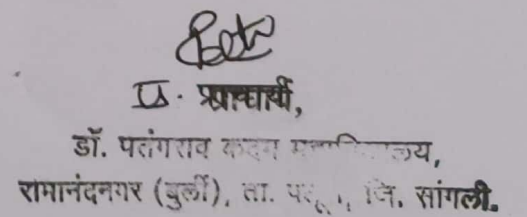 प्र. प्राचार्या,
डॉ. पतंगराव कदम महाविद्यालय,
रामानंदनगर (बुर्ली), ता. पलूस, जि. सांगली.